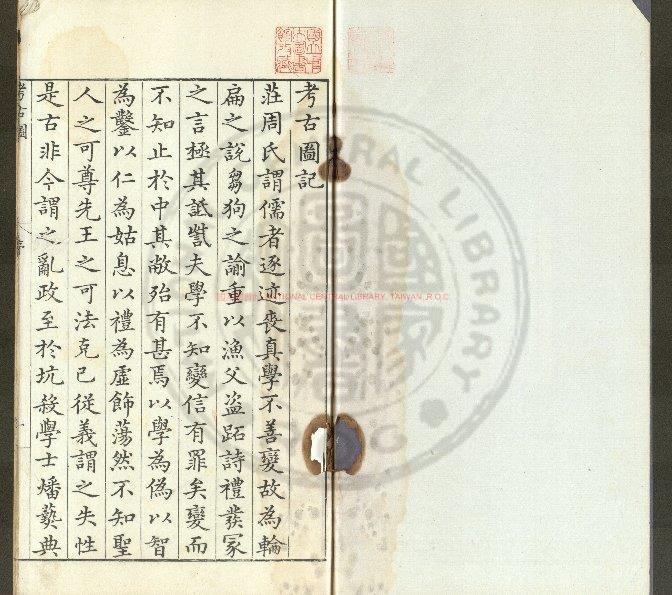 考古圖記
莊周氏謂儒者逐迹喪真學不善變故為輪
扁之說芻狗之諭重以漁父盜跖詩禮發冢
之言極其詆訾夫學不知變信有罪矣變而
不知止於中其敝殆有甚焉以學為偽以智
為鑿以仁為姑息以禮為虛飾蕩然不知聖
人之可尊先王之可法克己從義謂之失性
是古非今謂之亂政至於坑殺學士燔爇典
考古圖
NATIONAL CENTRAL LIBRARY, TAIWAN, R.O.C